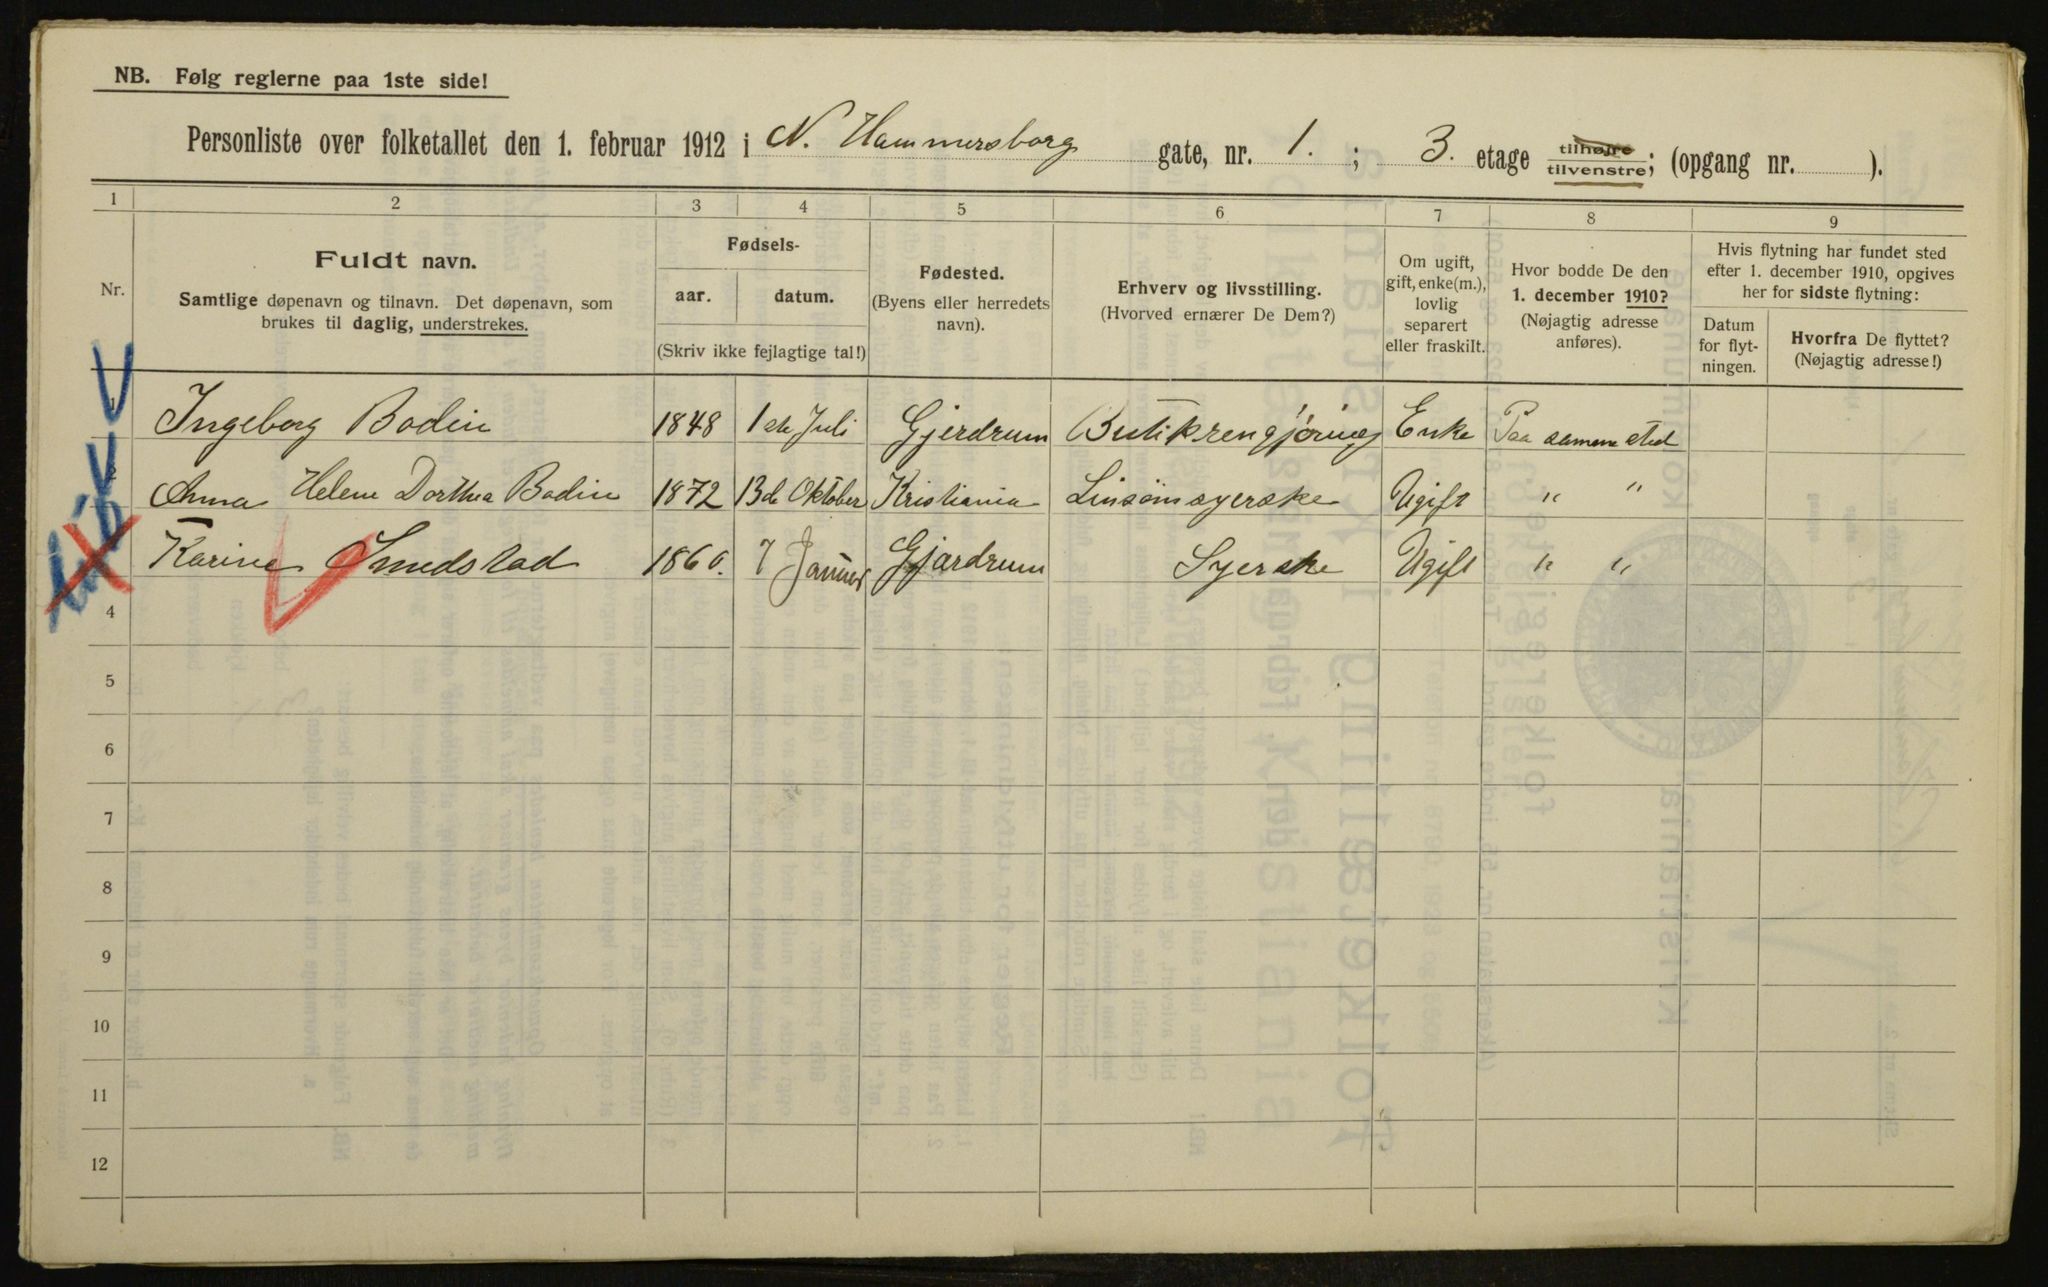 NB. Følg reglerne paa 1ste side!
Personliste over folketallet den 1. februar 1912 i N. Hammersborg gate, nr. 1. ; 3. etage tilhøjre tilvenstre; (opgang nr. ).
1 2 3 4 5 6 7 8 9
Nr.
Fuldt navn.
Samtlige døpenavn og tilnavn. Det døpenavn, som
brukes til daglig, understrekes.
Fødsels-
aar. datum.
(Skriv ikke fejlagtige tal!)
Fødested.
(Byens eller herredets
navn).
Erhverv og livsstilling.
(Hvorved ernærer De Dem?)
Om ugift,
gift, enke(m.),
lovlig
separert
eller fraskilt.
Hvor bodde De den
1. december 1910?
(Nøjagtig adresse
anføres).
Hvis flytning har fundet sted
efter 1. december 1910, opgives
her for sidste flytning:
Datum
for flyt-
ningen.
Hvorfra De flyttet?
(Nøjagtig adresse!)
1 Ingeborg Bodin 1848 1ste Juli Gjerdrum Butikrengjøring Enke Paa samme sted
2 Anna Helene Dorthea Bodin 1872 13de Oktober Kristiania Linsømsyerske Ugift " "
Karine Smedstad 1860. 7 Januar Gjærdrum Syerske Ugift " "
4
5
6
7
8
9
10
11
12